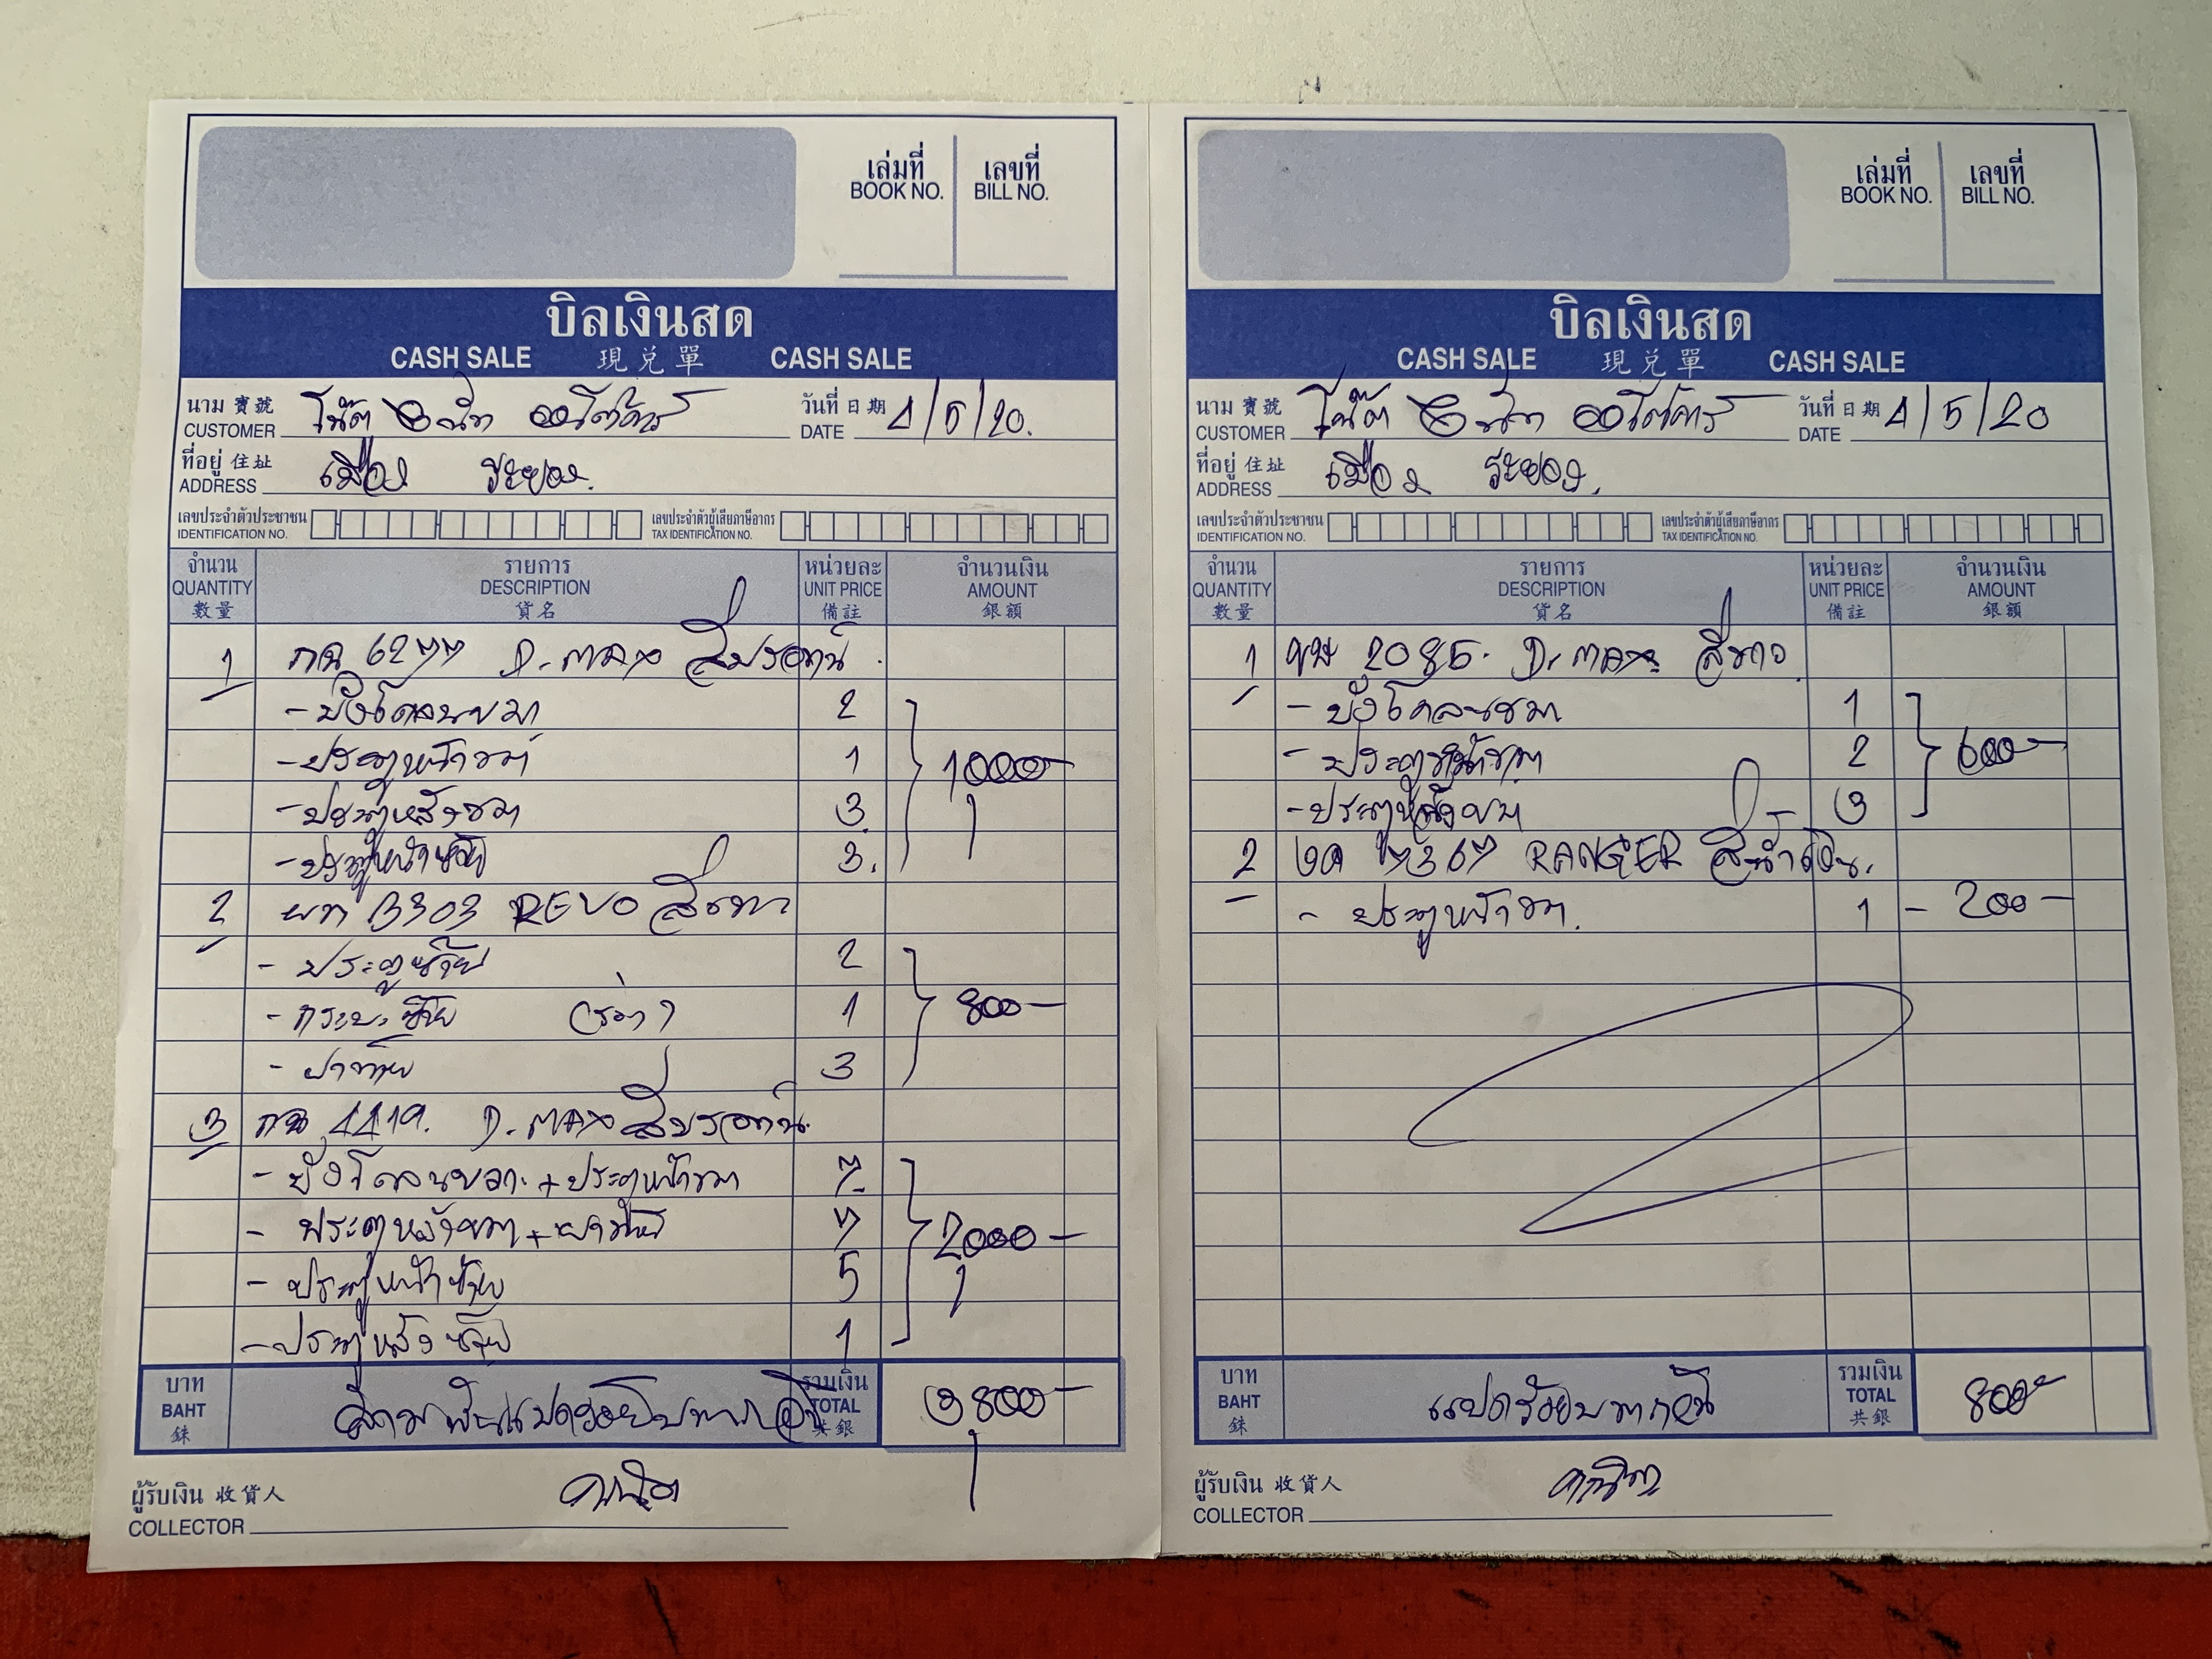 เล่มที่ เลขที่
BOOK NO. BILL NO.
บิลเงินสด
CASH SALE 現兌單 CASH SALE
นาม 寶號 โน๊ต ออโต้คาร์ วันที่ 日期 4/5/20.
CUSTOMER DATE
ที่อยู่ 住址 เมือง ระยอง.
ADDRESS
เลขประจำตัวประชาชน เลขประจำตัวผู้เสียภาษีอากร
IDENTIFICATION NO. TAX IDENTIFICATION NO.
จำนวน รายการ หน่วยละ จำนวนเงิน
QUANTITY DESCRIPTION UNIT PRICE AMOUNT
數量 貨名 備註 銀額
1 6277 D-MAX สีบรอนซ์
- บังโคลนขวา 2
- ประตูหน้าขวา 1 1000-
- ประตูหลังขวา 3
- ประตูหน้าซ้าย 3.
2 3303 REVO สีเทา
- ประตูซ้าย 2
- กระบะซ้าย 1 800-
- ฝาท้าย 3
3 4419. D-MAX สีบรอนซ์
- บังโคลนขวา + ประตูหน้าขวา 7
- ประตูหลังขวา + ฝาท้าย 7 2000-
- ประตูหน้าซ้าย 5
- ประตูหลังซ้าย 1
บาท รวมเงิน
BAHT สามพันแปดร้อยบาทถ้วน TOTAL 3800-
銖 共銀
ผู้รับเงิน 收貨人
COLLECTOR
เล่มที่ เลขที่
BOOK NO. BILL NO.
บิลเงินสด
CASH SALE 現兌單 CASH SALE
นาม 寶號 โน๊ต ออโต้คาร์ วันที่ 日期 4/5/20
CUSTOMER DATE
ที่อยู่ 住址 เมือง ระยอง.
ADDRESS
เลขประจำตัวประชาชน เลขประจำตัวผู้เสียภาษีอากร
IDENTIFICATION NO. TAX IDENTIFICATION NO.
จำนวน รายการ หน่วยละ จำนวนเงิน
QUANTITY DESCRIPTION UNIT PRICE AMOUNT
數量 貨名 備註 銀額
1 2085. D-MAX สีขาว
- บังโคลนขวา 1
- ประตูหน้าขวา 2 600-
- ประตูหลังขวา 3
2 7367 RANGER สีน้ำเงิน.
- ประตูหน้าขวา. 1 - 200-
บาท รวมเงิน
BAHT แปดร้อยบาทถ้วน TOTAL 800-
銖 共銀
ผู้รับเงิน 收貨人
COLLECTOR